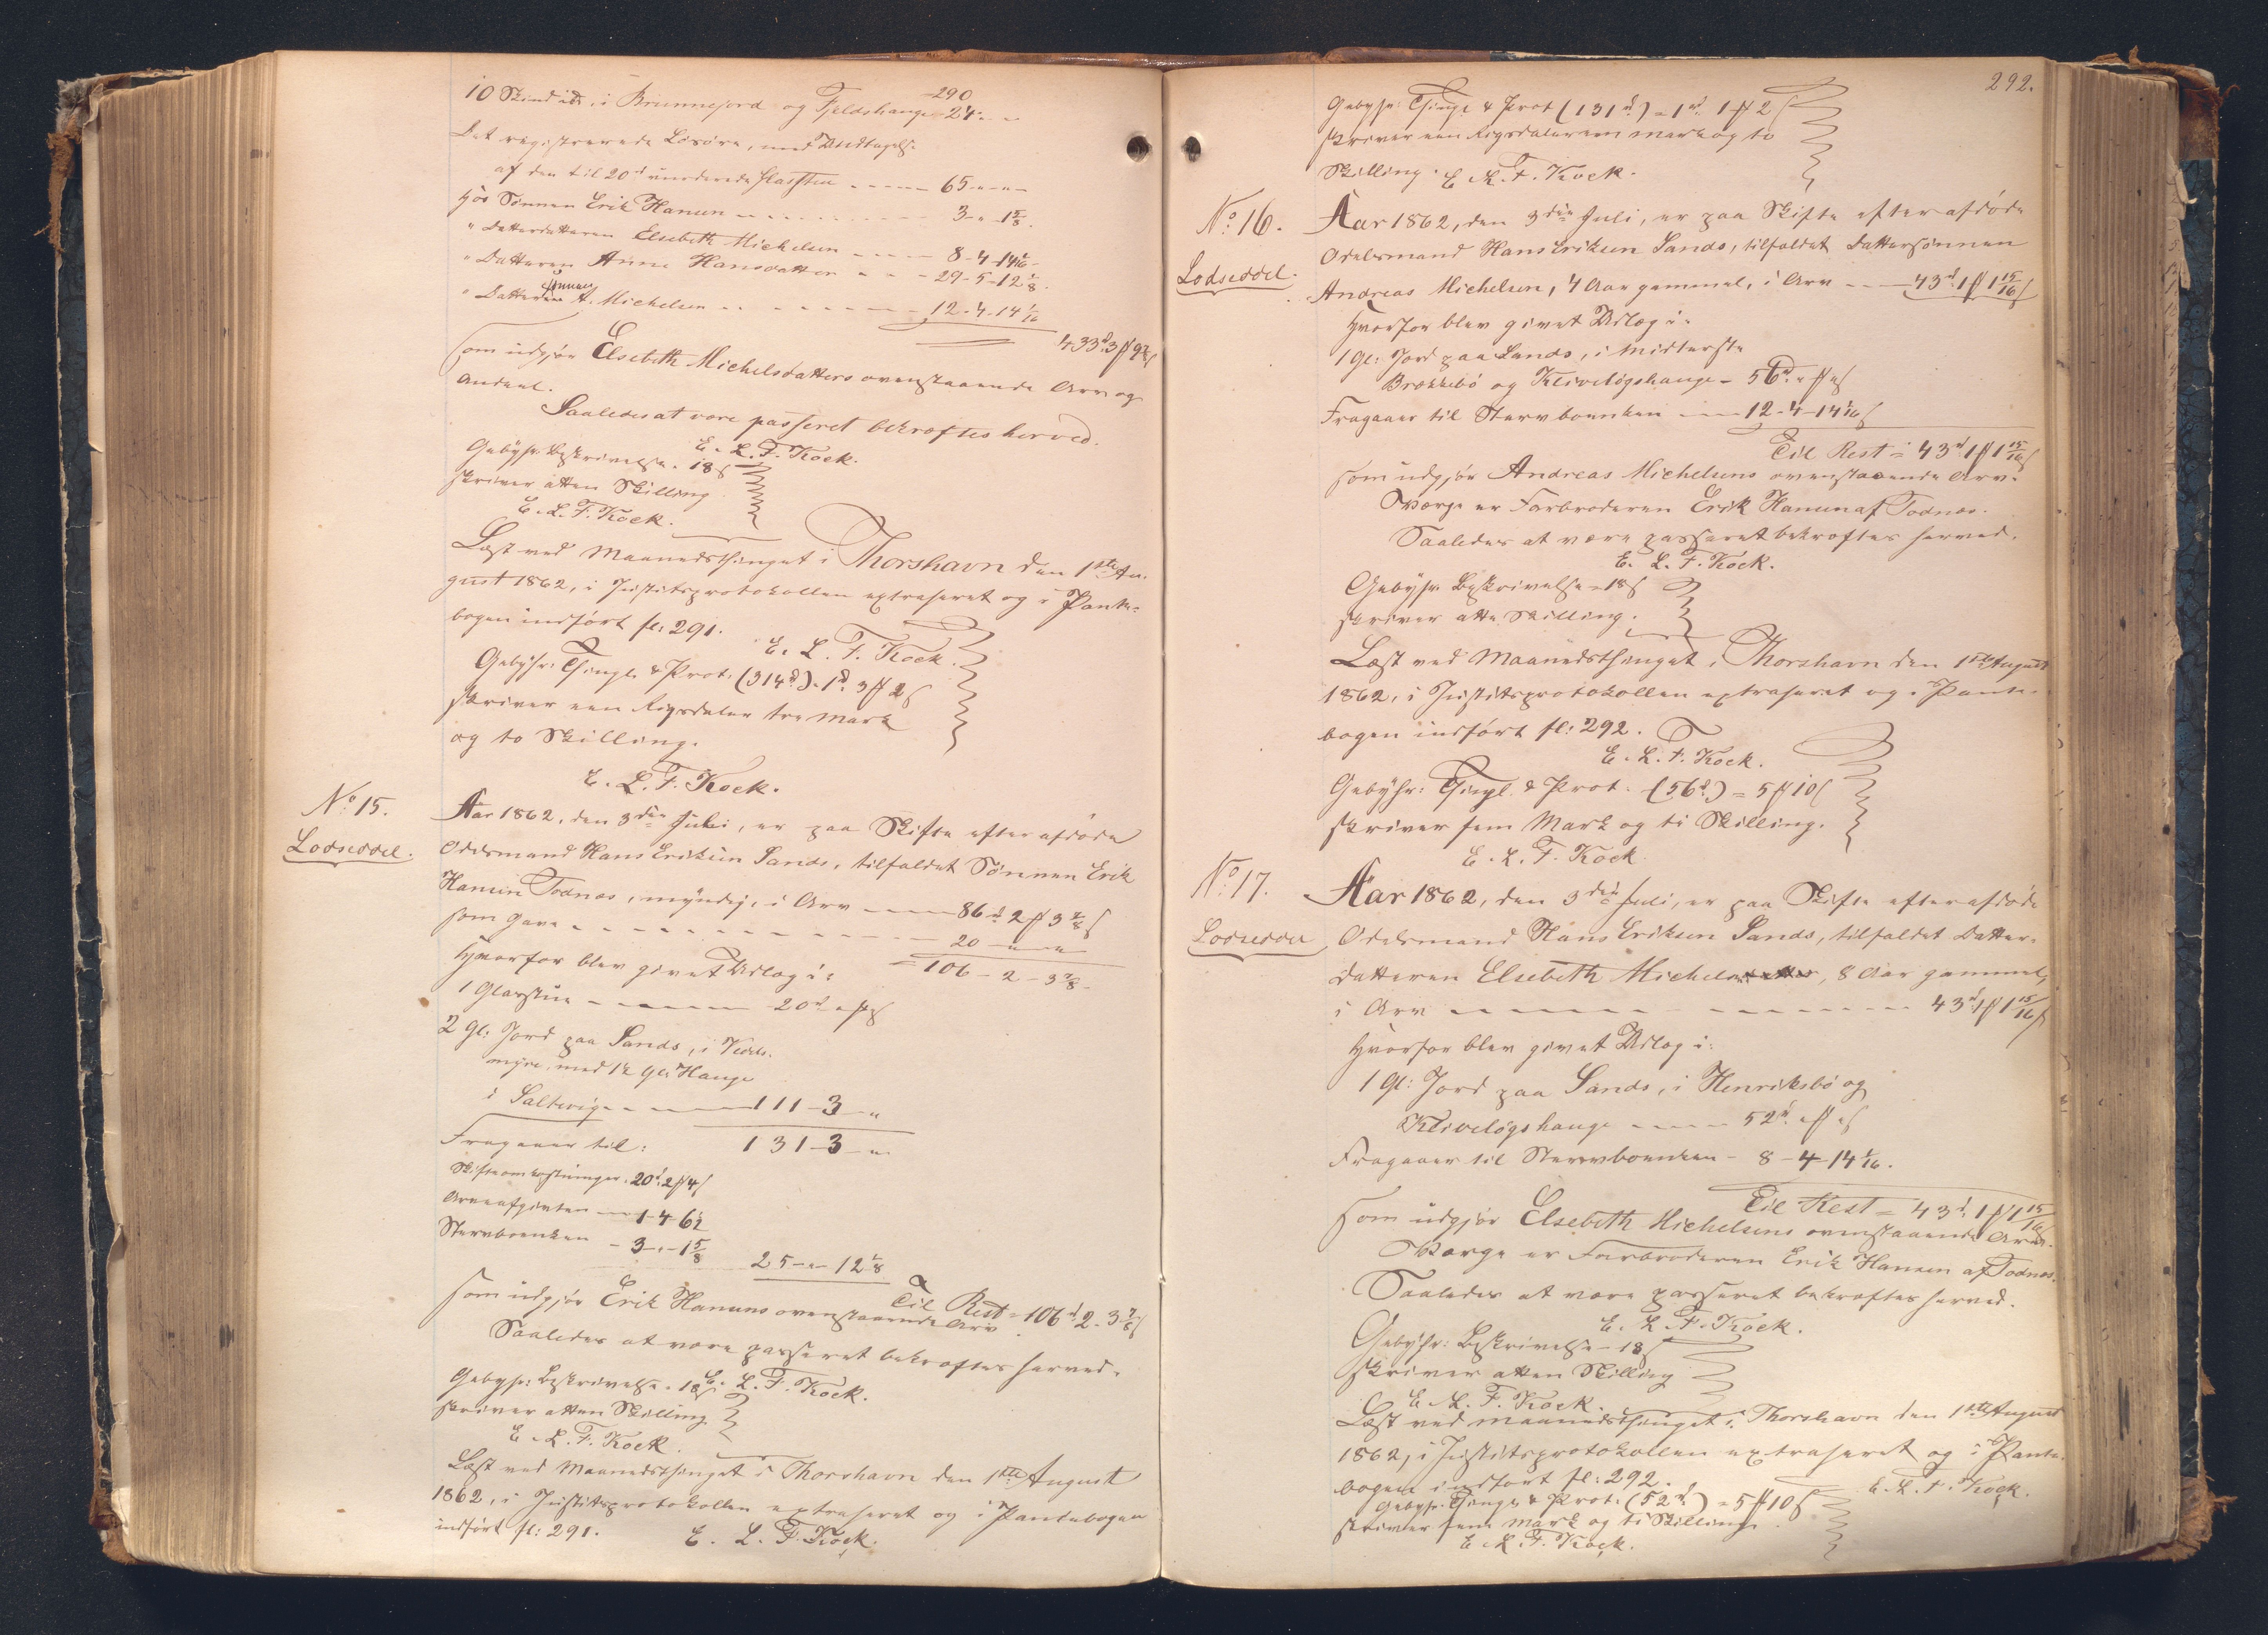 10 Skind ib., i Brunnejord og Fjeldshauge - 290
24 - "
Det registrerede Løsøre, med Undtagelse
af den til 20d vurderede Glasstue - - - - 65 - " - "
Hos Sønnen Erik Hansen - - - - - - - 3 - " - 1 5/8.
" Datterdatteren Elsebeth Michelsen - - - - 8 - 4 - 14 1/16
" Datteren Anne Hansdatter - - - 29 - 5 - 12 1/8.
" Dattersønnen A. Michelsen - - - - - - - 12 - 4 - 14 1/16
433d. 3 ß 9
som udgjør Elsebeth Michelsdatters ovenstaaende Arv og
Andeel.
Saaledes at være passeret bekræftes herved.
E. L. F. Kock.
Gebyhr: Beskrivelse. 18 ß
skriver atten Skilling
E. L. F. Kock.
Læst ved Maanedsthinget i Thorshavn den 1ste Au-
gust 1862, i Justitsprotokollen extraheret og i Pante-
bogen indført fl: 291.
E. L. F. Kock.
Gebyhr: Thingl. & Prot. (314d.) = 1d. 3 ß 2 ß
skriver een Rigsdaler tre Mark
og to Skilling.
E. L. F. Kock.
No. 15.
Lodseddel.
Aar 1862, den 3die Juli, er paa Skifte efter afdøde
Odelsmand Hans Eriksen Sands, tilfaldet Sønnen Erik
Hansen Todnæs, myndig, i Arv - - - 86d. 2 ß 3 7/8 ß
som Gave - - - - - - - - - - 20 - " - "
= 106 - 2 - 3 7/8
Hvorfor blev givet Udlæg i:
1 Glasstue - - - - - - 20d. " ß " ß
2 Gl: Jord paa Sands, i
myre, med 1/2 Gl: Hauge
i Saltvig - - - - 111 - 3 - "
131 - 3 - "
Fragaaer til:
Skifteomkostninger. 20d. 2 ß 4 ß
Arveafgivten - - 1 - 4 - 6 1/2
Stervboenken - 3 - " - 1 5/8
25 - " - 12 1/8
Til Rest = 106d. 2 - 3 7/8 ß
som udgjør Erik Hansens ovenstaaende Arv.
Saaledes at være passeret bekræftes herved.
E. L. F. Kock.
Gebyhr: Beskrivelse. 18 ß
skriver atten Skilling
E. L. F. Kock.
Læst ved Maanedsthinget i Thorshavn den 1ste August
1862, i Justitsprotokollen extraheret og i Pantebogen
indført fl: 291.
E. L. F. Kock.
292.
Gebyhr: Thingl & Prot (131d.) = 1d. 1 ß 2 ß
skriver een Rigsdaler een Mark og to
Skilling. E. L. F. Kock.
No. 16.
Lodseddel.
Aar 1862, den 3die Juli, er paa Skifte efter afdøde
Odelsmand Hans Eriksen Sands, tilfaldet Dattersønnen
Andreas Michelsen, 4 Aar gammel, i Arv - - - 43d. 1 ß 1 15/16 ß
Hvorfor blev givet Udlæg i:
1 Gl: Jord paa Sands, i Midterste
Brækkebø og Kliveløgshauge - 56d. " ß " ß
Fragaaer til Stervboenken - - 12 - 4 - 14 1/16 ß
Til Rest = 43d. 1 ß 1 15/16 ß
som udgjør Andreas Michelsens ovenstaaende Arv.
Værge er Farbroderen Erik Hansen af Todnæs.
Saaledes at være passeret bekræftes herved.
E. L. F. Kock.
Gebyhr: Beskrivelse = 18 ß
skriver atten Skilling.
Læst ved Maanedsthinget i Thorshavn den 1ste August
1862, i Justitsprotokollen extraheret og i Pante-
bogen indført fl: 292.
E. L. F. Kock.
Gebyhr: Thingl. & Prot. (56d.) = 5 ß 10 ß
skriver fem Mark og ti Skilling.
E. L. F. Kock
No. 17.
Lodseddel
Aar 1862, den 3die Juli, er paa Skifte efter afdøde
Odelsmand Hans Eriksen Sands, tilfaldet Datter-
datteren Elsebeth Michelsen, 8 Aar gammel,
i Arv - - - - - - - - - - - - - 43d. 1 ß 1 15/16 ß
Hvorfor blev givet Udlæg i:
1 Gl: Jord paa Sands, i Henriksbø og
Kliveløgshauge - - - - 52d. " ß " ß
Fragaaer til Stervboenken - 8 - 4 - 14 1/16.
Til Rest = 43d. 1 ß 1 15/16 ß
som udgjør Elsebeth Michelsens ovenstaaende Arv.
Værge er Farbroderen Erik Hansen af Todnæs.
Saaledes at være passeret bekræftes herved.
E. L. F. Kock.
Gebyhr: Beskrivelse - 18 ß
skriver atten Skilling
E. L. F. Kock.
Læst ved Maanedsthinget i Thorshavn den 1ste August
1862, i Justitsprotokollen extraheret og i Pante-
bogen indført fl: 292.
E. L. F. Kock.
Gebyhr. Thingl. & Prot. (52d.) = 5 ß 10 ß
skriver fem Mark og ti Skilling.
E. L. F. Kock.